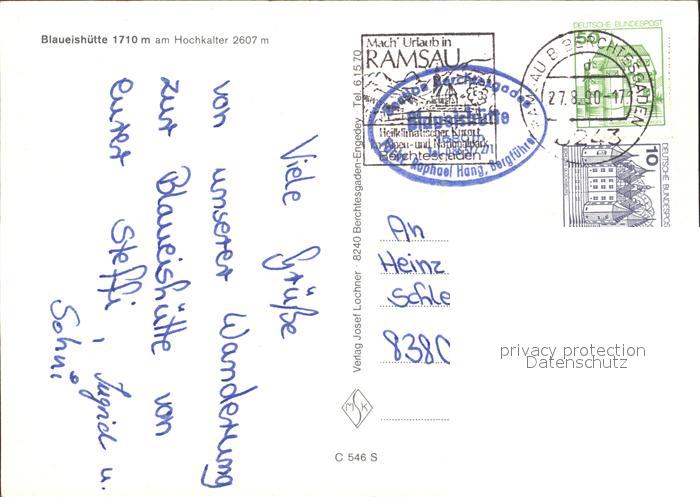 Blaueishütte 1710 m am Hochkalter 2607 m
Viele Grüße
von unserer Wanderung
zur Blaueishütte von
eurer Steffi, Ingrid u.
Sohni
Verlag Josef Lochner 8240 Berchtesgaden-Engedey Tel. 6 15 70
C 546 S
MSK
Mach' Urlaub in
RAMSAU
Heilklimatischer Kurort
im Alpen- und Nationalpark
Berchtesgaden
Blaueishütte
Raphael Hang, Bergführer
RAMSAU B BERCHTESGADEN
27.8.80-17
8243
DEUTSCHE BUNDESPOST
50
10
DEUTSCHE BUNDESPOST
An
Heinz
Schle
8380
privacy protection
Datenschutz